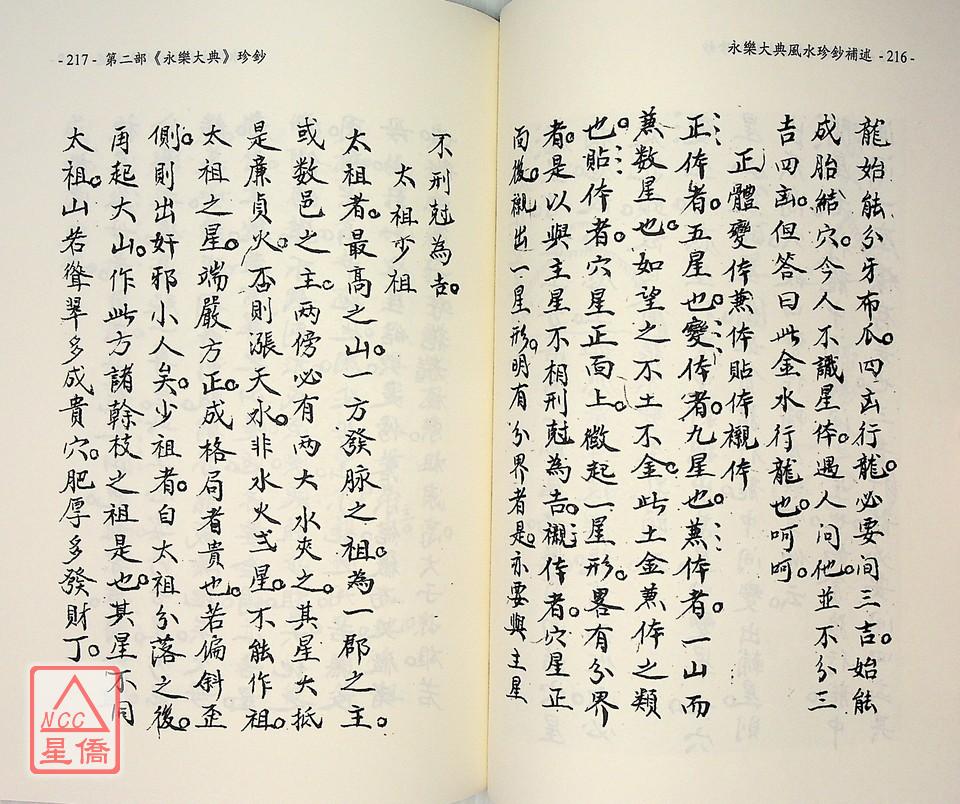 永樂大典風水珍鈔補述 -216-
龍始能分牙布瓜。四凶行龍。必要間三吉。始能
成胎結穴。今人不識星体。遇人問他。並不分三
吉四凶。但答曰此金水行龍也。呵呵。
正體變体蒹体貼体襯体
正体者。五星也。變体者。九星也。蒹体者。一山而
蒹数星也。如望之不土不金。此土金蒹体之類
也。貼体者。穴星正面上。微起一星形。畧有分界
者。是以與主星不相刑尅為吉。襯体者。穴星正
面後。襯出一星形。明有分界者是。亦要與主星
-217- 第二部《永樂大典》珍鈔
不刑尅為吉。
太祖少祖
太祖者。最高之山。一方發脉之祖。為一郡之主。
或数邑之主。兩傍必有兩大水夾之。其星大抵
是廉貞火。否則漲天水。非水火弍星。不能作祖。
太祖之星。端嚴方正。成格局者貴也。若偏斜歪
側。則出奸邪小人矣。少祖者。自太祖分落之後。
再起大山。作此方諸幹枝之祖是也。其星不同
太祖。山若聳翠多成貴穴。肥厚多發財丁。
NCC
星僑